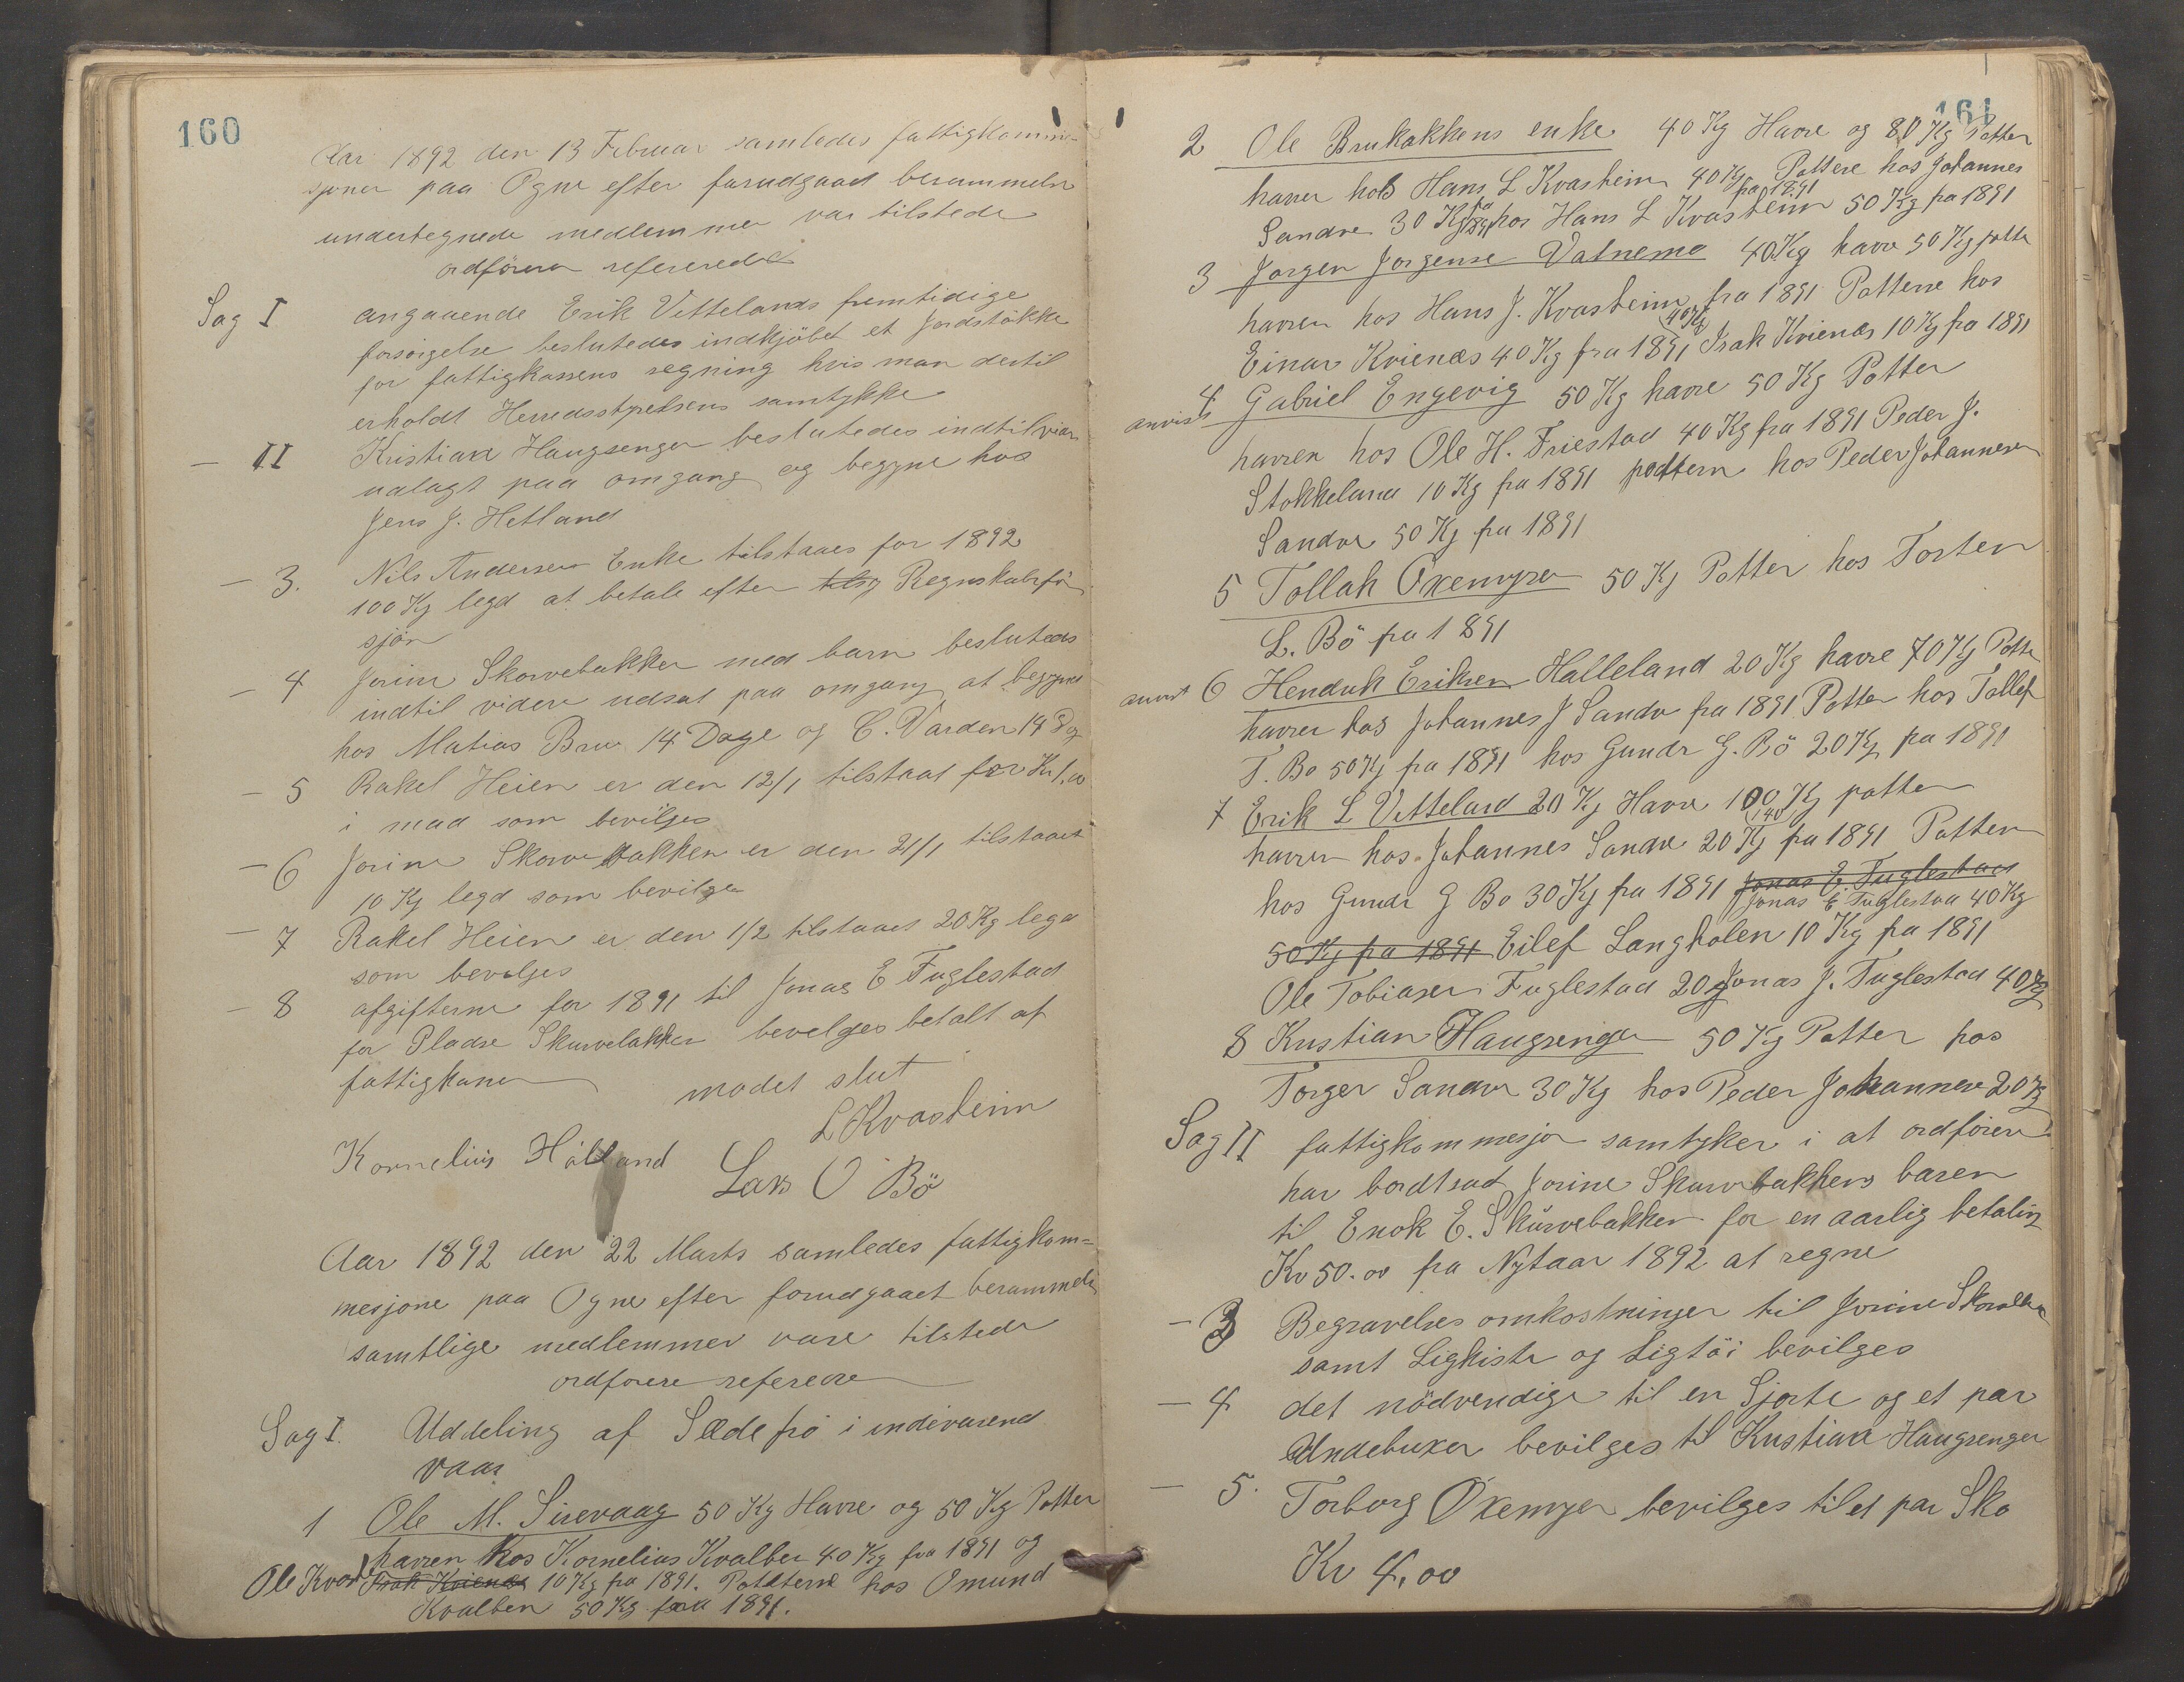 160
Aar 1892 den 13 Februar samledes fattigkommis-
sjonen paa Ogne efter forudgaad berammelse
undertegnede medlemmer var tilstede
ordförern refererede
Sag I angaaende Erik Vettelands fremtidige
forsörgelse beslutedes indkjöbet et Jordstökke
for fattigkassens regning hvis man dertil
erholdt Herredsstyrelsens samtykke
— II Kristian Haugsenger beslutedes indtil vier
udlagt paa omgang og begyne hos
Jens J. Hetland
— 3. Nils Andersen Enke tilstaaes for 1892
100 Kg legd at betale efter tilsy Regnskabsför
sjön
— 4 Jorine Skorvebakken med barn besluteds
indtil videre udsat paa omgang at begyne
hos Matias Bru 14 Dage og C. Varden 14 Dag
— 5 Rakel Heien er den 12/1 tilstaat for Kr 1,00
i mad som bevilges
— 6 Jorine Skorvebakken er den 21/1 tilstaaet
10 Kg legd som bevilges
— 7 Rakel Heien er den 1/2 tilstaaes 20 Kg legd
som bevilges
— 8 afgifterne for 1891 til Jonas E Fuglestad
for Pladse Skurvebakken bevelges betalt af
fattigkasen
modet slut
L Kvasheim
Kornelius Hålland Lars O Bö
Aar 1892 den 22 Marts samledes fattigkom=
mesjone paa Ogne efter forudgaaet berammels
samtlige medlemmer vare tilstede
ordforere referere
Sag I. Uddeling af Sædefrö i indeværend
vaar
1 Ole M. Sirevaag 50 Kg Havre og 50 Kg Potter
havren hos Kornelius Kvalben 40 Kg fra 1891 og
Ole Kvas Isak Kvienes 10 Kg fra 1891. Potterne hos Omund
Kvalben 50 Kg fra 1891.
161
2 Ole Brukakkens enke 40 Kg Havre og 80 Kg Potter
havren hos Hans L Kvasheim 40 Kg fra 1891 Pottere hos Johannes
Sandve 30 Kg fra 1891 hos Hans L Kvasheim 50 Kg fra 1891
3 Jorgen Jorgense Vatnemo 40 Kg havre 50 Kg potte
havren hos Hans J. Kvasheim 40 Kg fra 1891 Potterne hos
Einar Kvienes 40 Kg fra 1891 Isak Kvienes 10 Kg fra 1891
anvist 4 Gabriel Engevig 50 Kg havre 50 Kg Potter
havren hos Ole H. Friestad 40 Kg fra 1891 Peder J.
Stokkeland 10 Kg fra 1891 pottern hos Peder Johannesen
Sandve 50 Kg fra 1891
5 Tollak Oxemyra 50 Kg Potter hos Torsten
L. Bö fra 1891
anvist 6 Hendrik Eriksen Halleland 20 Kg havre 70 Kg Potte
havren hos Johannes J Sandve fra 1891 Potter hos Tollef
T. Bo 50 Kg fra 1891 hos Gundr G. Bö 20 Kg fra 1891
7 Erik L Vetteland 20 Kg Havre 100 Kg potter
(140
havren hos Johannes Sandve 20 Kg fra 1891 Potten
hos Gundr G Bo 30 Kg fra 1891 Jonas E. Fuglestad
Jonas E Fuglestad 40 Kg
50 Kg fra 1891 Eilef Langholen 10 Kg fra 1891
Ole Tobiasen Fuglestad 20 Jonas J. Fuglestad 40 Kg
8 Kristian Haugsenger 50 Kg Potter hos
Torger Sandve 30 Kg hos Peder Johannese 20 Kg
Sag II fattigkommesjon samtyker i at ordfören
har bordtsad Jorine Skurvebakkens baren
til Enok E. Skurvebakken for en aarlig betaling
Kr 50.00 fra Nytaar 1892 at regne
— 3 Begravelses omkostninger til Jorine Skorvebakke
samt Ligkiste og Ligtöi bevilges
— 4 det nödvendige til en Sjorte og et par
Undebuxer bevilges til Kristian Haugsenger
— 5. Torborg Oxemyr bevilges til et par Sko
Kr 4,00